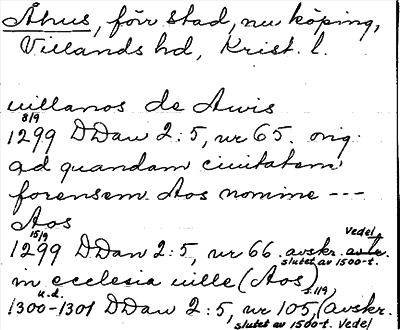 Åhus, förr stad, nu köping,
Villands hd, Krist. l.
villanos de Awis
8/9
1299 DDan 2:5, nr 65. orig.
ad quandam ciuitatem
forensem Aos nomine ---
Aos
15/9
1299 DDan 2:5, nr 66. avskr. Vedel
slutet av 1500-t.
in ecclesia uille (Aos)
u.d. s.119
1300-1301 DDan 2:5, nr 105, (avskr.
slutet av 1500-t. Vedel